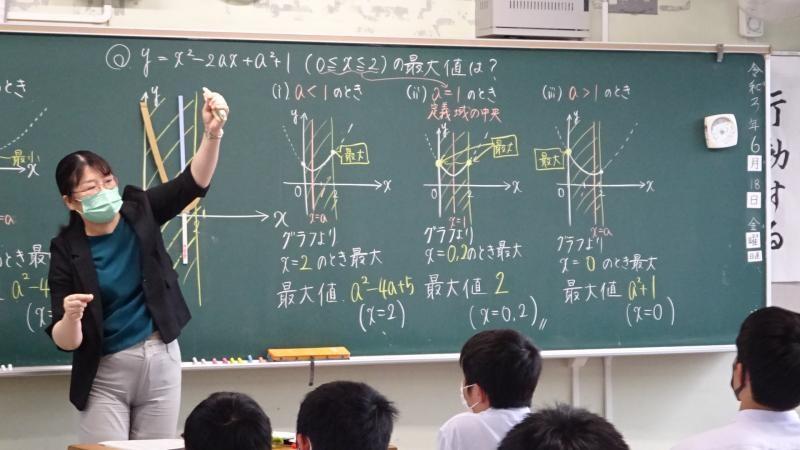 Q y = x²-2ax+a²+1 (0≦x≦2)の最大値は?
(i) a<1のとき
(ii) a=1のとき
定義域の中央
(iii) a>1のとき
y
最大
0
x
x=a
y
最大
0
x
x=1
y
最大
0
x
x=a
y
x
グラフより
x=2のとき最大
最大値 a²-4a+5
(x=2)
グラフより
x=0,2のとき最大
最大値 2
(x=0,2)
グラフより
x=0のとき最大
最大値 a²+1
(x=0)
とき
最小
x
のとき最大
a²-4a
(x=
令和3年6月18日金曜日
行動する